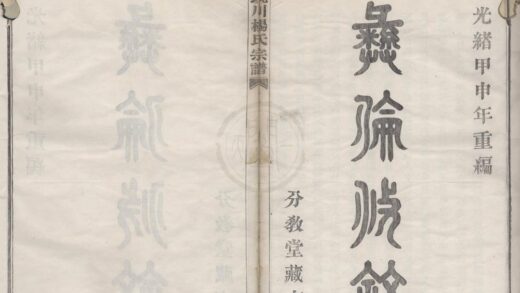 光緒甲申年重編
彝倫攸敘
分教堂藏
川楊氏宗譜